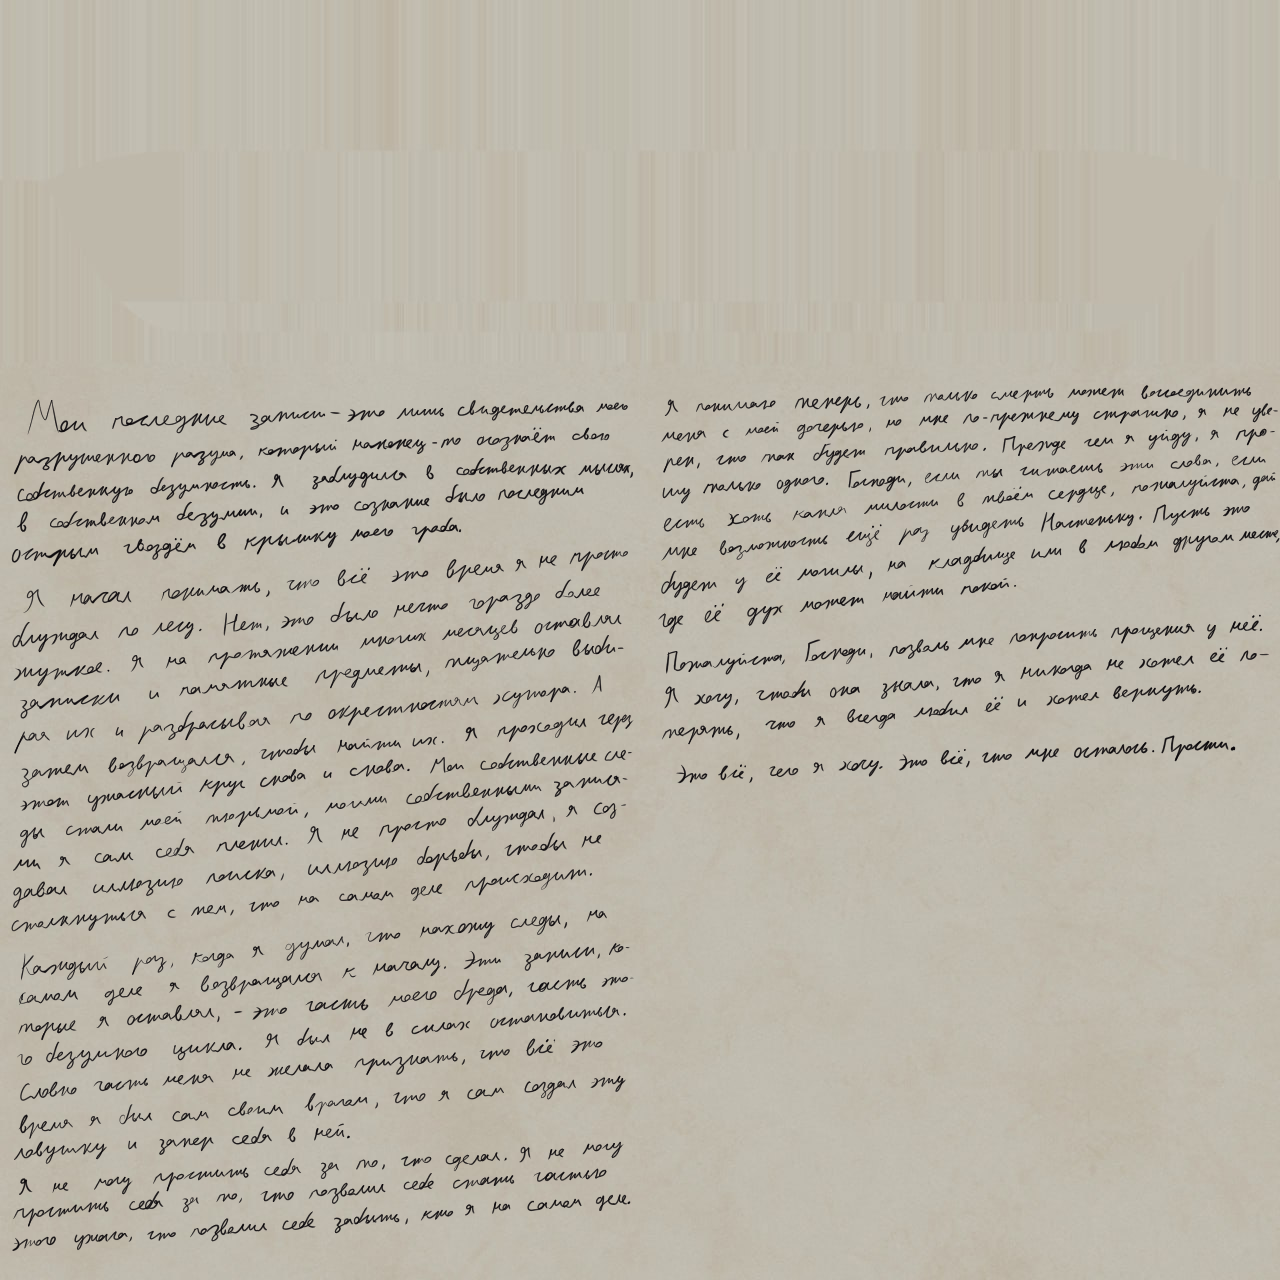 Мои последние записи – это лишь свидетельства моего
разрушенного разума, который наконец-то осознаёт свою
собственную безумность. Я заблудился в собственных мыслях,
в собственном безумии, и это сознание было последним
острым гвоздём в крышку моего гроба.
Я начал понимать, что всё это время я не просто
блуждал по лесу. Нет, это было нечто гораздо более
жуткое. Я на протяжении многих месяцев оставлял
записки и памятные предметы, тщательно выби-
рая их и разбрасывая по окрестностям хутора. А
затем возвращался, чтобы найти их. Я проходил через
этот ужасный круг снова и снова. Мои собственные сле-
ды стали моей тюрьмой, моими собственными запися-
ми я сам себя пленил. Я не просто блуждал, я соз-
давал иллюзию поиска, иллюзию борьбы, чтобы не
столкнуться с тем, что на самом деле происходит.
Каждый раз, когда я думал, что нахожу следы, на
самом деле я возвращался к началу. Эти записи, ко-
торые я оставлял, – это часть моего бреда, часть это-
го безумного цикла. Я был не в силах остановиться.
Словно часть меня не желала признать, что всё это
время я был сам своим врагом, что я сам создал эту
ловушку и запер себя в ней.
Я не могу простить себя за то, что сделал. Я не могу
простить себя за то, что позволил себе стать частью
этого ужаса, что позволил себе забыть, кто я на самом деле.
Я понимаю теперь, что только смерть может воссоединить
меня с моей дочерью, но мне по-прежнему страшно, я не уве-
рен, что так будет правильно. Прежде чем я уйду, я про-
шу только одного. Господи, если ты читаешь эти слова, если
есть хоть капля милости в твоём сердце, пожалуйста, дай
мне возможность ещё раз увидеть Настеньку. Пусть это
будет у её могилы, на кладбище или в любом другом месте,
где её дух может найти покой.
Пожалуйста, Господи, позволь мне попросить прощения у неё.
Я хочу, чтобы она знала, что я никогда не хотел её по-
терять, что я всегда любил её и хотел вернуть.
Это всё, чего я хочу. Это всё, что мне осталось. Прости.